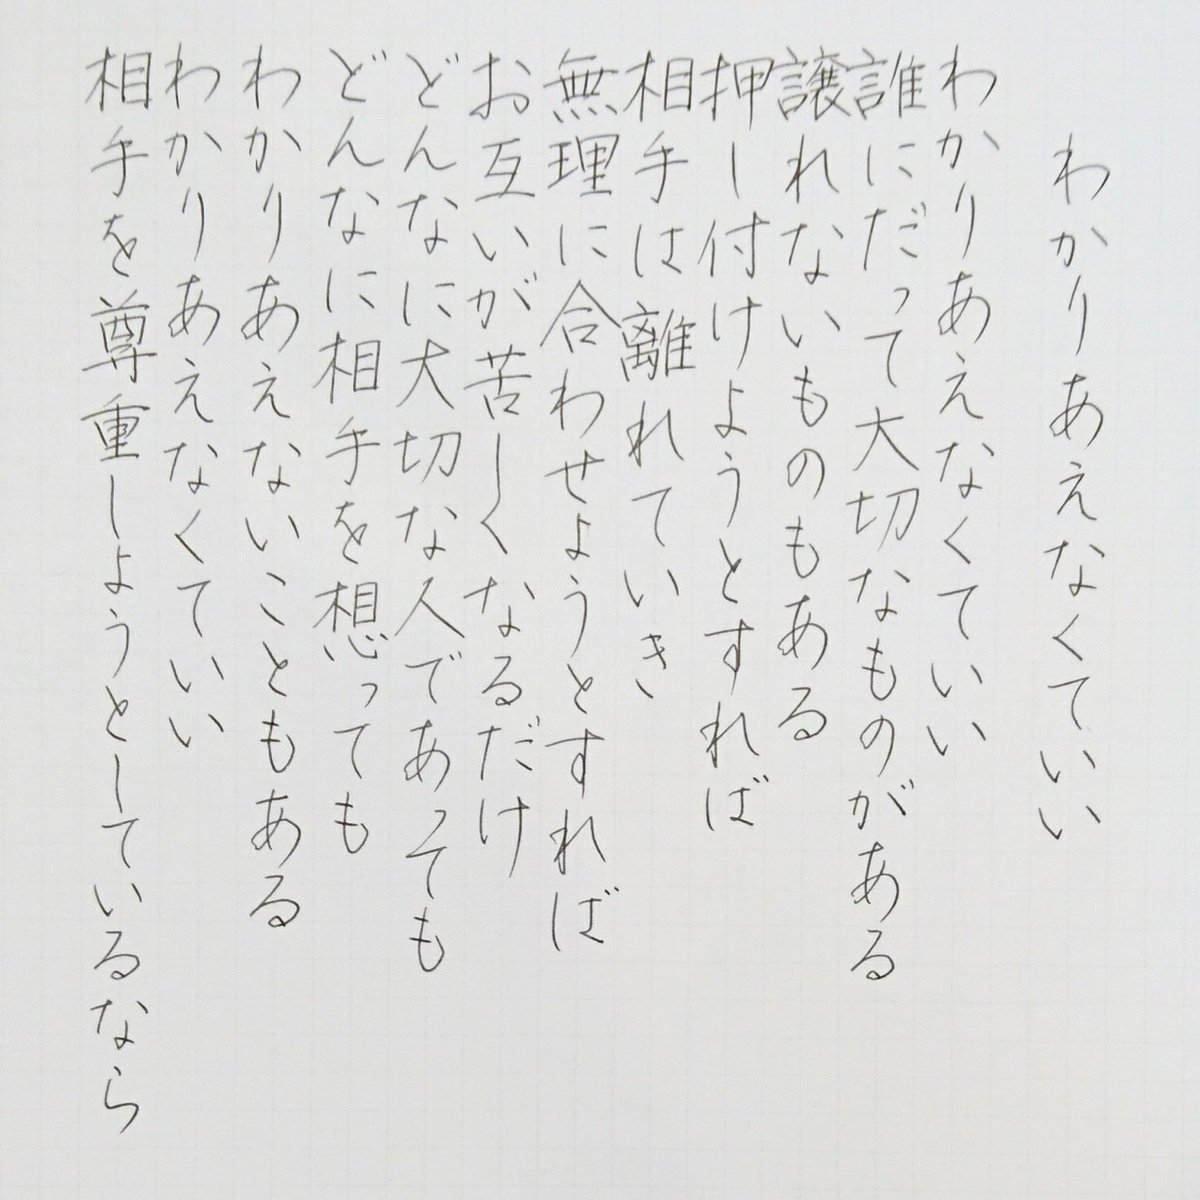 わかりあえなくていい
わかりあえなくていい
誰にだって大切なものがある
譲れないものもある
押し付けようとすれば
相手は離れていき
無理に合わせようとすれば
お互いが苦しくなるだけ
どんなに大切な人であっても
どんなに相手を想っても
わかりあえないこともある
わかりあえなくていい
相手を尊重しようとしているなら